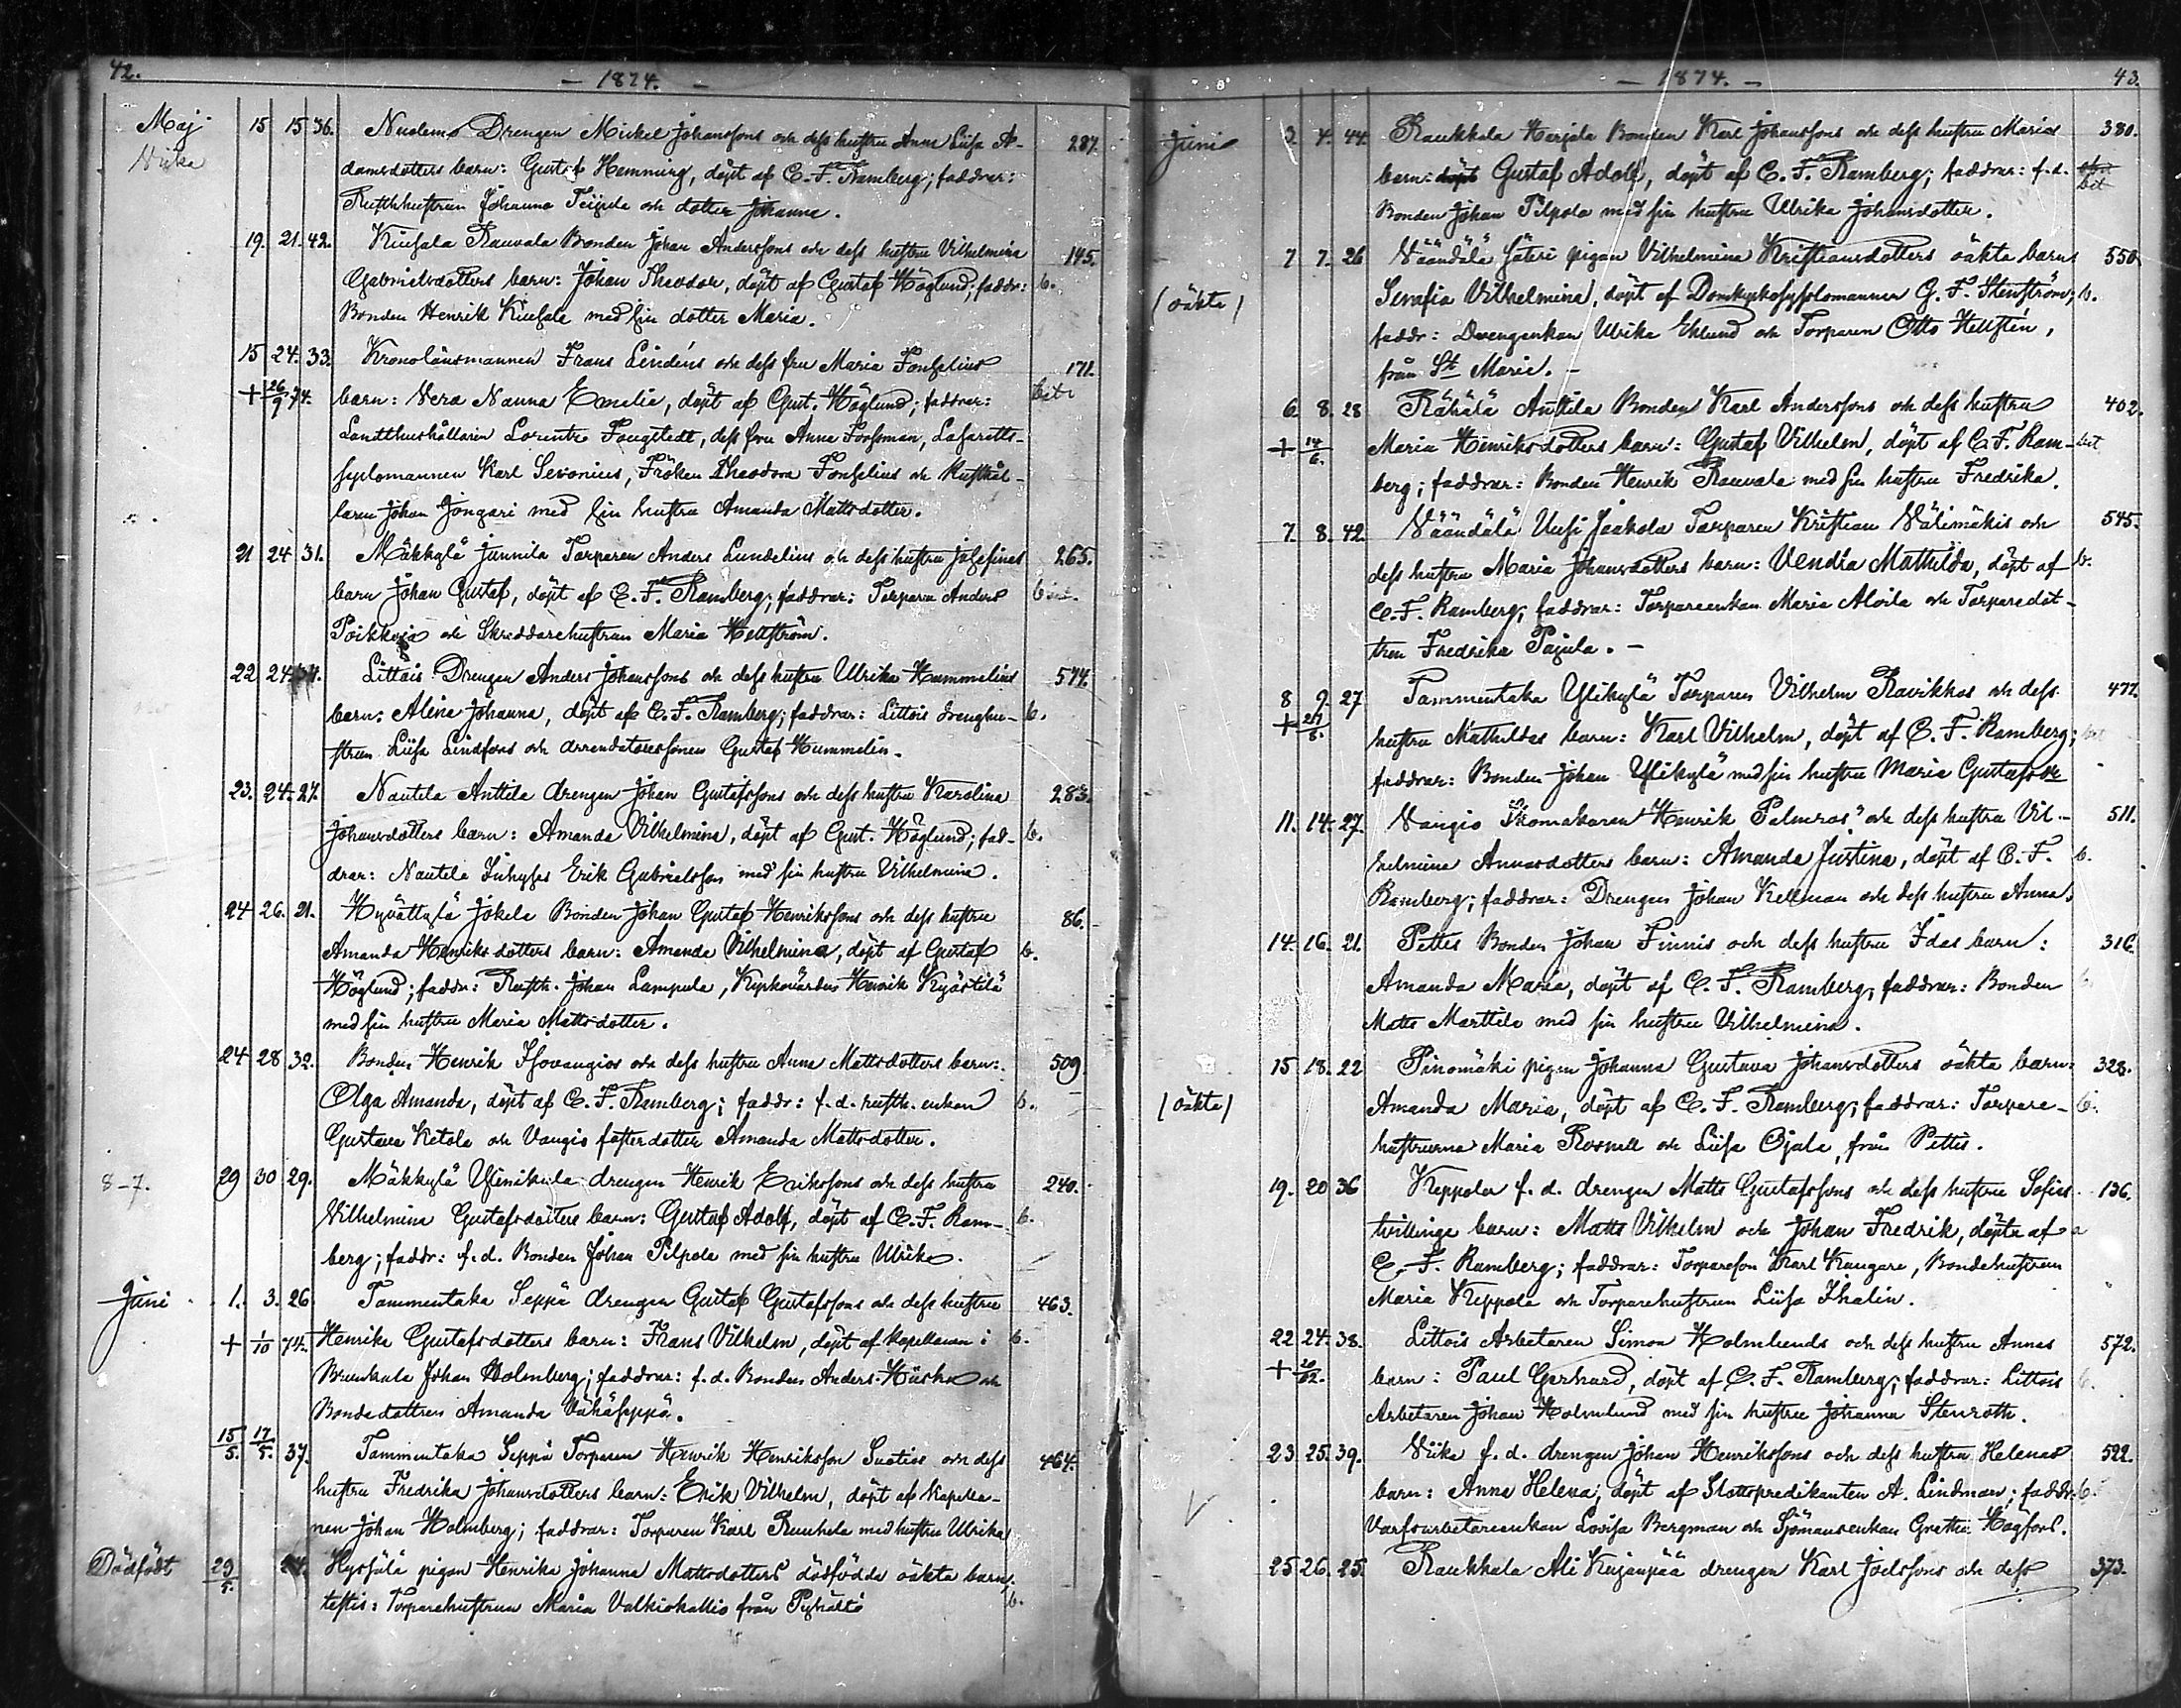 42.
— 1874. —
Maj 15 15 36. Nuolemo Drengen Mickel Johanssons och dess hustru Anna Lisa A- 287.
damsdotters barn: Gustaf Hemming, döpt af C. F. Ramberg; faddrar:
Rusth.hustrun Johanna Teijula och dotter Johanna.
19. 21. 42. Kuusala Rauvala Bonden Johan Anderssons och dess hustru Vilhelmina 145.
Gabrielsdotters barn: Johan Theodor, döpt af Gustaf Höglund; faddr: b.
Bonden Henrik Kuusala med sin dotter Maria.
15 24. 33. Kronolänsmannen Frans Lindéns och dess fru Maria Fonselius 171.
+ 26/9 74. barn: Vera Nanna Emelie, döpt af Gust. Höglund; faddrar:
Landthushållaren Lorentz Fougstedt, dess fru Anna Forssman, Lasaretts-
sysslomannen Karl Sevonius, Fröken Theodora Fonselius och Rusthål-
laren Johan Jongari med sin hustru Amanda Mattsdotter.
21 24 31. Mäkkylä Junnila Torparen Anders Lundelins och dess hustru Josefinas 265.
barn Johan Gustaf, döpt af C. F. Ramberg; faddrar: Torparen Anders
Poikkoja och Skräddarehustrun Maria Hellström.
22 24. Littois Drengen Anders Johanssons och dess hustru Ulrika Hummelins 574.
barn: Alina Johanna, döpt af C. F. Ramberg; faddrar: Littois drenghu- b.
strun Lisa Lindfors och arrendatorssonen Gustaf Hummelin.
23. 24. 27. Nautela Anttila drengen Johan Gustafssons och dess hustru Karolina 283.
Johansdotters barn: Amanda Vilhelmina, döpt af Gust. Höglund; fad- b.
drar: Nautela Inhyses Erik Gabrielsson med sin hustru Vilhelmina.
24 26. 21. Hyvättylä Jokela Bonden Johan Gustaf Henrikssons och dess hustru 86.
Amanda Henriksdotters barn: Amanda Vilhelmina, döpt af Gustaf b.
Höglund; faddr: Rusth. Johan Lampula, Kyrkovärden Henrik Kyöstilä
med sin hustru Maria Mattsdotter.
24 28 32. Bonden Henrik Isovangios och dess hustru Anna Mattsdotters barn: 509.
Olga Amanda, döpt af C. F. Ramberg; faddr: f. d. rusth. enkan b.
Gustava Ketola och Vangis fosterdotter Amanda Mattsdotter.
8-7. 29 30 29. Mäkkylä Ylinikula drengen Henrik Erikssons och dess hustru 240.
Vilhelmina Gustafsdotters barn: Gustaf Adolf, döpt af C. F. Ram- b.
berg; faddr: f. d. Bonden Johan Pilpola med sin hustru Ulrika.
Juni 1. 3. 26 Tammentaka Seppä drengen Gustaf Gustafssons och dess hustru 463.
+ 1/10 74. Henrika Gustafsdotters barn: Frans Vilhelm, döpt af Kapellanen i b.
Brunkala Johan Holmberg; faddrar: f. d. Bonden Anders och
Bondedottren Amanda Vähäseppä.
15/5. 17/5. 37. Tammentaka Seppä Torparen Henrik Henriksson Suotios och dess 464.
hustru Fredrika Johansdotters barn: Erik Vilhelm, döpt af Kapella-
nen Johan Holmberg; faddrar: Torparen Karl Ruuhela med hustru Ulrika
Dödfödt 29/5. 24. pigan Henrika Johanna Mattsdotters dödfödda oäkta barn;
testis: Torparehustrun Maria Valkiokallio från b.
— 1874. — 43.
Juni 3. 4. 44. Raukkala Harjola Bonden Karl Johanssons och dess hustru Marias 380.
barn: döpt Gustaf Adolf, döpt af C. F. Ramberg; faddrar: f. d.
Bonden Johan Pilpola med sin hustru Ulrika Johansdotter.
7 7. 26 Väändälä säteri pigan Vilhelmina Kristiansdotters oäkta barn 550.
(oäkta) Serafia Vilhelmina, döpt af Domkyrkosysslomannen G. F. Stenström; b.
faddr: Drengenkan Ulrika Eklund och Torparen Otto Hellstén,
från St Marie. —
6. 8. 28 Rähälä Anttila Bonden Karl Anderssons och dess hustru 402.
+ 14/6. Maria Henriksdotters barn: Gustaf Vilhelm, döpt af C. F. Ram-
berg; faddrar: Bonden Henrik Rauvala med sin hustru Fredrika.
7. 8. 42. Väändälä Uusi Jaakola Torparen Kristian Välimäkis och 545.
dess hustru Maria Johansdotters barn: Vendla Mathilda, döpt af b.
C. F. Ramberg; faddrar: Torpareenkan Maria Aloila och Torparedot-
tren Fredrika Pajula. —
8 9. 27 Tammentaka Ylikylä Torparen Vilhelm Ravikkas och dess 477.
+ hustru Mathildas barn: Karl Vilhelm, döpt af C. F. Ramberg;
faddrar: Bonden Johan Ylikylä med sin hustru Maria Gustafsdr
11. 14. 27. Vangio Skomakaren Henrik Palmros' och dess hustru Vil- 511.
helmina Annasdotters barn: Amanda Justina, döpt af C. F. b.
Ramberg; faddrar: Drengen Johan Kellman och dess hustru Anna.
14. 16. 21. Pettis Bonden Johan Finnis och dess hustru Idas barn: 316.
Amanda Maria, döpt af C. F. Ramberg; faddrar: Bonden
Matts Marttila med sin hustru Vilhelmina.
15 18. 22 Pinomäki pigan Johanna Gustava Johansdotters oäkta barn: 328.
(oäkta) Amanda Maria, döpt af C. F. Ramberg; faddrar: Torpare- b.
hustrurna Maria Rosnell och Lisa Ojala, från Pettis.
19. 20 36 Keppola f. d. drengen Matts Gustafssons och dess hustru Sofias 136.
tvillinge barn: Matts Vilhelm och Johan Fredrik, döpta af
C. F. Ramberg; faddrar: Torpareson Karl Kangare, Bondehustrun
Maria Keppola och Torparehustrun Lisa Thalin.
22 24. 38. Littois Arbetaren Simon Holmlunds och dess hustru Annas 572.
+ barn: Paul Gerhard, döpt af C. F. Ramberg; faddrar: Littois b.
Arbetaren Johan Holmlund med sin hustru Johanna Stenroth.
23 25. 39. Viika f. d. drengen Johan Henrikssons och dess hustru Helenas 522.
barn: Anna Helena; döpt af Slottspredikanten A. Lindman; faddr: b.
Varfsarbetareenkan Lovisa Bergman och Sjömansenkan Gretha Högfors.
25 26. 25. Raukkala Ali Kujanpää drengen Karl Joelssons och dess 373.